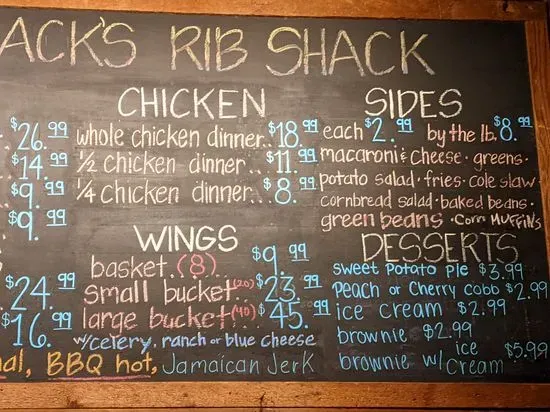 ACK'S RIB SHACK
$26.99
$14.99
$9.99
$9.99
$24.99
$16.99
CHICKEN
whole chicken dinner..$18.99
1/2 chicken dinner...$11.99
1/4 chicken dinner...$8.99
WINGS
basket..(8)...$9.99
small bucket..(20)$23.99
large bucket..(40)$45.99
w/celery, ranch or blue cheese
al, BBQ hot, Jamaican Jerk
SIDES
each $2.99 by the lb. $8.99
macaroni & cheese · greens ·
potato salad · fries · cole slaw ·
cornbread salad · baked beans ·
green beans · Corn MUFFiNs
DESSERTS
sweet potato pie $3.99
peach or cherry cobb $2.99
ice cream $2.99
brownie $2.99
brownie w/ ice cream $5.99